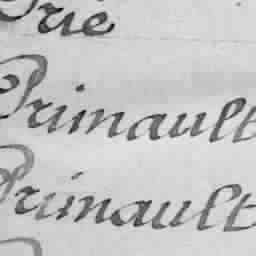 Prie
Primault
Primault